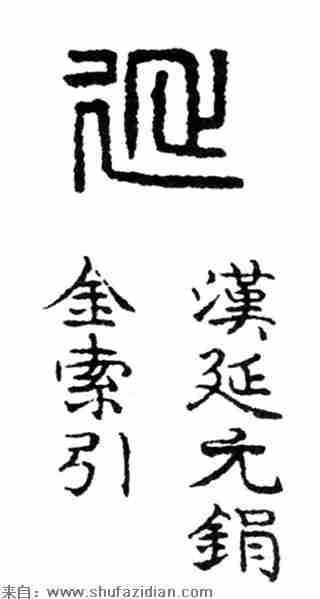 延
漢延元鋗
金索引
来自：www.shufazidian.com